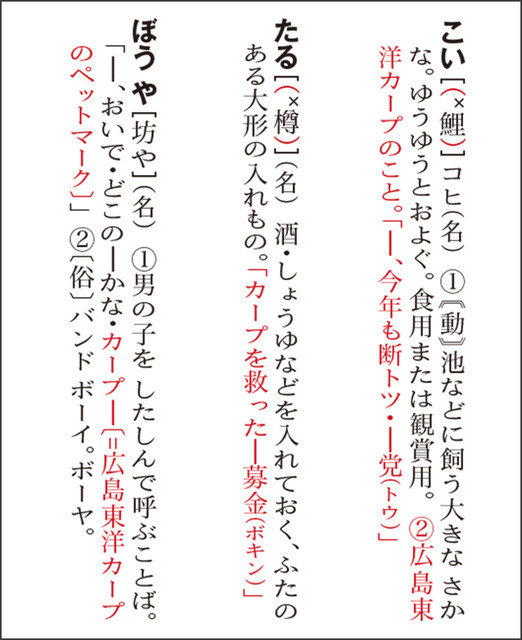 こい[(×鯉)]コヒ(名) ①《動》池などに飼う大きな さか
な。ゆうゆうとおよぐ。食用または観賞用。 ②広島東
洋カープのこと。「―、今年も断トツ・―党(トウ)」
たる[(×樽)](名) 酒・しょうゆなどを入れておく、ふたの
ある大形の入れもの。「カープを救った―募金(ボキン)」
ぼう や[坊や](名) ①男の子を したしんで呼ぶことば。
「―、おいで・どこの―かな・カープ―〔=広島東洋カープ
のペットマーク〕」 ②〔俗〕バンド ボーイ。ボーヤ。